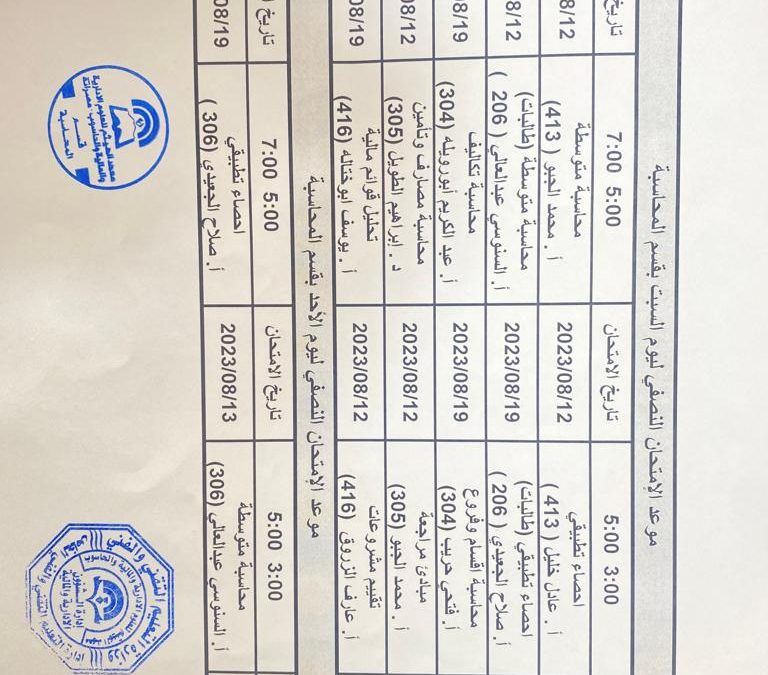 موعد الإمتحان النصفي ليوم السبت بقسم المحاسبة
5:00 3:00
تاريخ الامتحان
7:00 5:00
تاريخ
احصاء تطبيقي
أ. عادل خليل ( 413 )
2023/08/12
محاسبة متوسطة
أ. محمد الجبو ( 413 )
08/12
احصاء تطبيقي (طالبات)
أ. صلاح الجعيدي ( 206 )
2023/08/19
محاسبة متوسطة (طالبات)
أ. السنوسي عبدالعالي ( 206 )
08/12
محاسبة اقسام وفروع
أ. فتحي حريب (304)
2023/08/19
محاسبة تكاليف
أ. عبد الكريم أبورويله (304)
08/19
مبادئ مراجعة
أ. محمد الجبو (305)
2023/08/12
محاسبة مصارف وتأمين
د. إبراهيم الطويل (305)
08/12
تقييم مشروعات
أ. عارف الزروق (416)
2023/08/12
تحليل قوائم مالية
أ. يوسف ابوختاله (416)
08/19
موعد الإمتحان النصفي ليوم الأحد بقسم المحاسبة
5:00 3:00
تاريخ الامتحان
7:00 5:00
تاريخ
محاسبة متوسطة
أ. السنوسي عبدالعالي (306)
2023/08/13
احصاء تطبيقي
أ. صلاح الجعيدي ( 306 )
08/19
وزارة التعليم التقني والفني
إدارة الشؤون
الإدارية والمالية
معهد الهيثم للعلوم الادارية
والمالية والحاسوب - مصراتة
قسم
المحاسبة